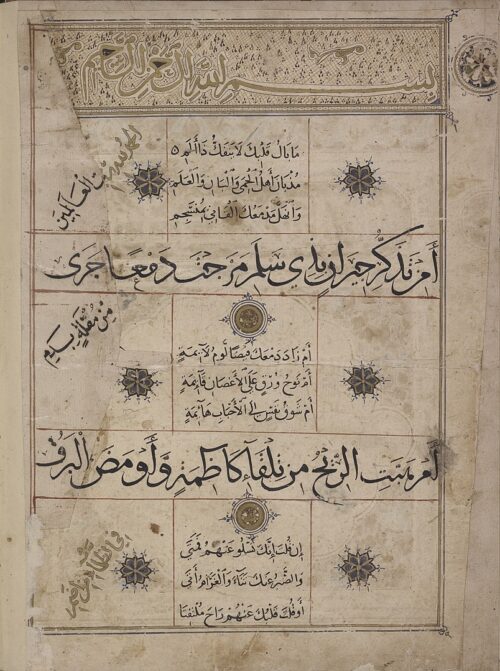 بسم الله الرحمن الرحيم
الحمد لله رب العالمين
ما بال قلبك لا ينفك ذا ألم
مذ بان أهل الحمى والبان والعلم
وانهل مدمعك القاني بمنسجم
أمن تذكر جيران بذي سلم مزجت دمعا جرى
من مقلة بدم
أم زاد دمعك فيضا لوم لائمة
أم نوح ورق على الأغصان قائمة
أم شوق نفس إلى الأحباب هائمة
أم هبت الريح من تلقاء كاظمة وأومض البرق
في الظلماء من إضم
إن قلت إنك تسلو عنهم فمتى
عنك ناء والغرام أتى
أو قلت قلبك عنهم راح ملتفتا